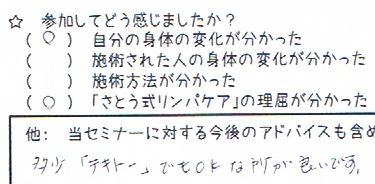 ☆ 参加してどう感じましたか?
(○) 自分の身体の変化が分かった
( ) 施術された人の身体の変化が分かった
( ) 施術方法が分かった
(○) 「さとう式リンパケア」の理屈が分かった
他: 当セミナーに対する今後のアドバイスも含め
多少「テキトー」でもOKな所が良いです。